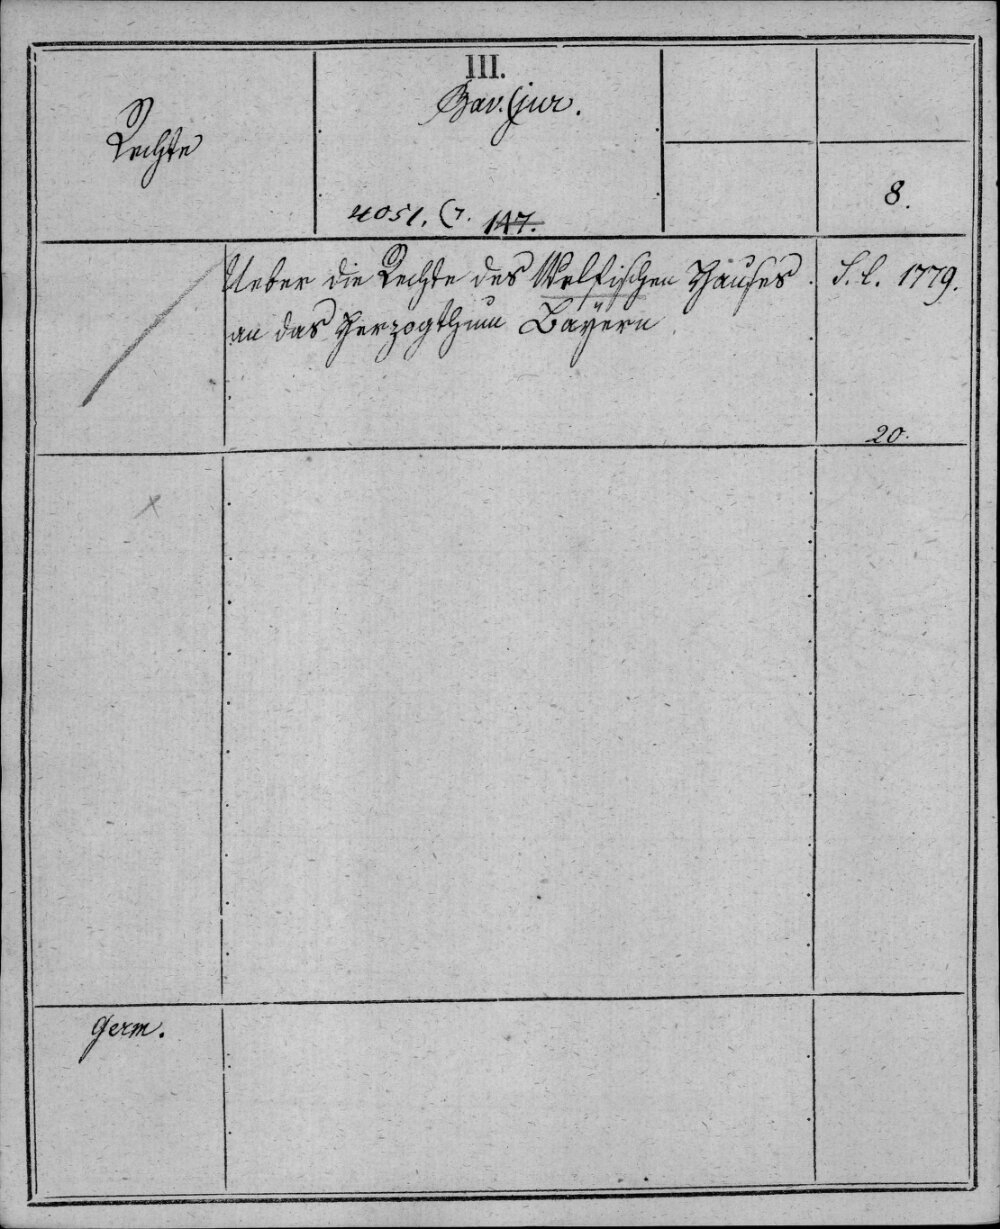 III.
Bav. jur.
Rechte
8.
4051. (7. 147.
Ueber die Rechte des Welfischen Hauses
S. l. 1779.
an das Herzogthum Bayern
20.
Germ.